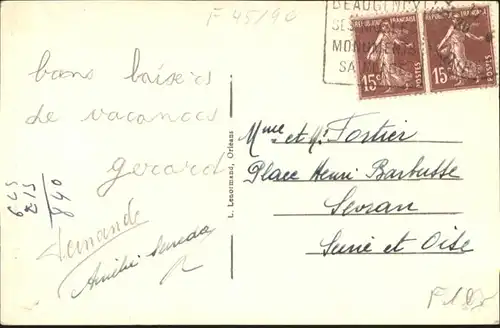 F 45/90
BEAUGENCY
SES
MONUMENTS
SA
REPUBLIQUE FRANÇAISE
15c POSTES
REPUBLIQUE FRANÇAISE
15c POSTES
bons baisers
de vacances
gerard
Fernande
625
215
840
L. Lenormand, Orléans
Mme et Mr Fortier
Place Henri Barbusse
Sevran
Seine et Oise